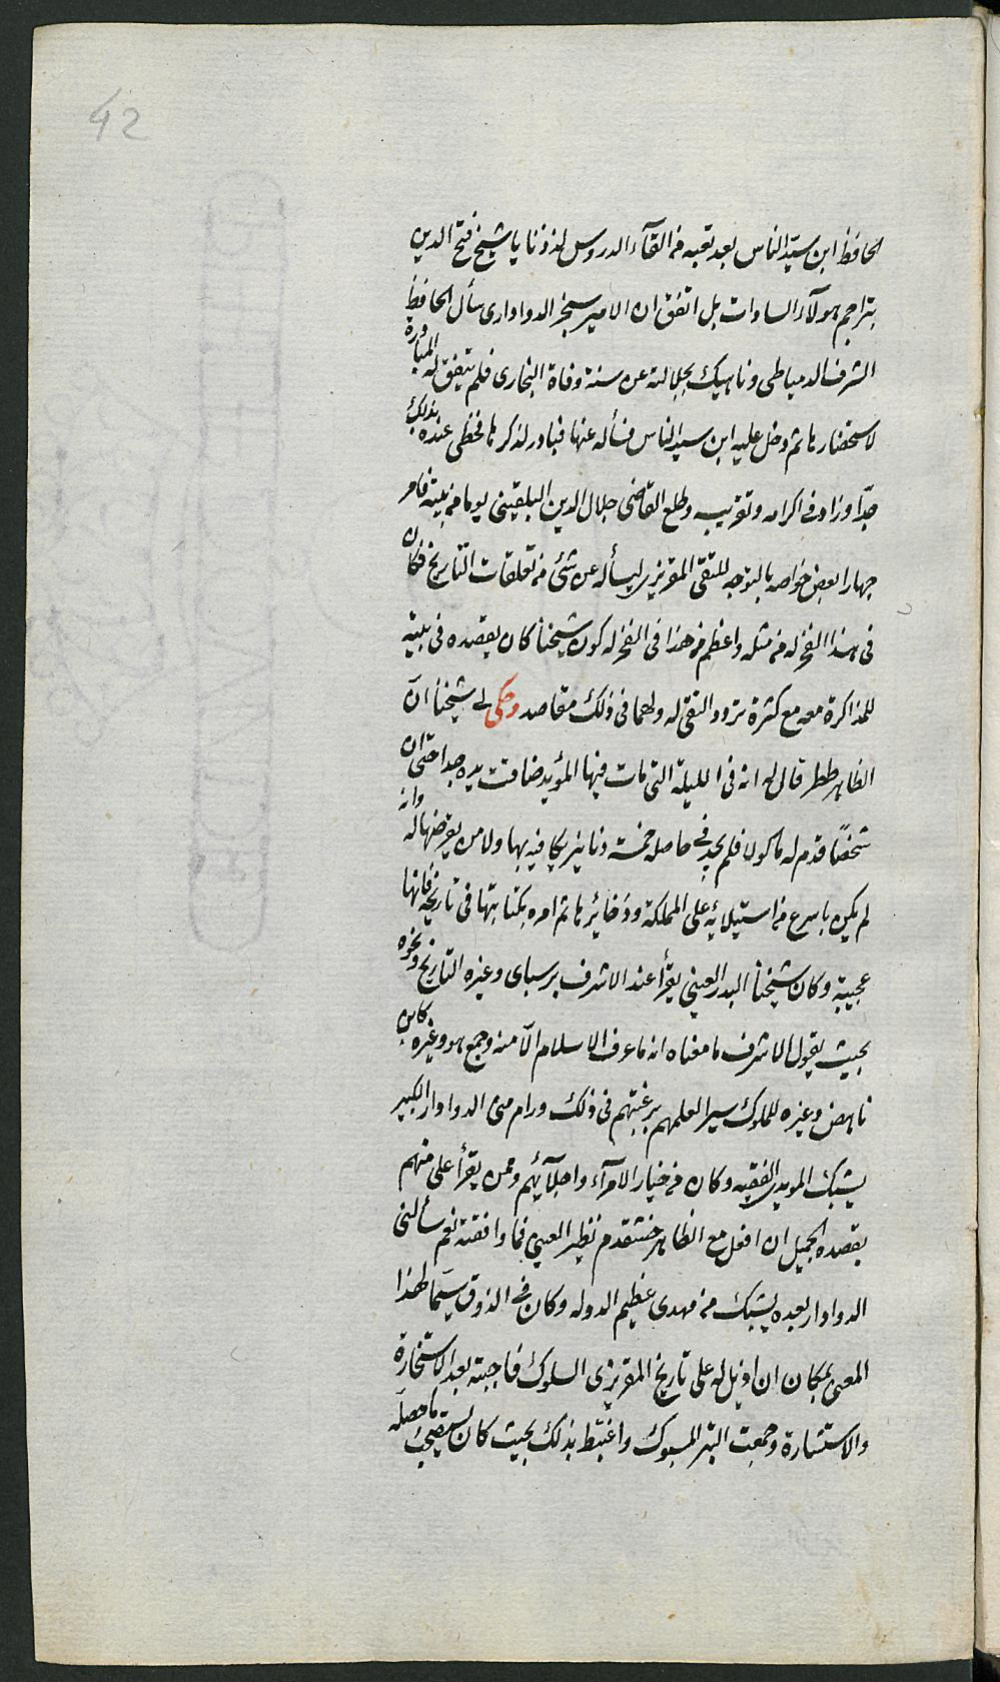 42
الحافظ ابن سيّد الناس بعد تعبه من القآء الدروس لذذنا يا شيخ فتح الدين
بتراجم هولآء السادات بل اتفق ان الامير سنجر الدواداري سأل الحافظ
الشرف الدمياطى وناهيك بجلالته عن سنة وفاة البخارى فلم يتفق له المبادرة
لاستحضارها ثم دخل عليه ابن سيد الناس فسأله عنها فبادر لذكرها فحظى عنده بذلك
جدّا وزاد فى اكرامه وتقريبه وطلع القاضى جلال الدين البلقينى يوما من بيته فامر
جهارا بعض خواصه بالتوجه للتقى المقريزى ليسأله عن شئ من تعلقات التاريخ فكان
فى هذا الفخر له من مثله واعظم من هذا فى الفخر له كون شيخنا كان يقصده فى بيته
للمذاكرة معه مع كثرة تردد التقى له ولهما فى ذلك مقاصد وحكى لى شيخنا انّ
الظاهر ططر قال له انه فى الليلة التى مات فيها المؤيد ضاقت يده جدا حتى ان
شخصًا قدم له مأكولا فلم يجد فى حاصله خمسة دنانير يكافيه بها ولا من يقرضها له وانه
لم يكن باسرع من استيلائه على المملكة وذخائرها ثم امره بكتابتها فى تاريخه فانها
عجيبة وكان شيخنا البدر العينى يقرأ عند الاشرف برسباى وغيره التاريخ ونحوه
بحيث يقول الاشرف ما معناه انه ما عرف الاسلام الا منه وجمع هو وغيره كابن
ناهض وغيره للملوك سيرا لعلمهم برغبتهم فى ذلك ورام منى الدوادار الكبير
يشبك المويدى الفقيه وكان من خيار الامرآء واجلآئهم وممن يقرأ على منهم
بقصده الجميل ان افعل مع الظاهر خشقدم نظير العينى فما وافقته نعم سألنى
الدوادار بعده يشبك من مهدى عظيم الدوله وكان فى الذوق سيما لهذا
المعنى بمكان ان اذيل له على تاريخ المقريزى السلوك فاجبته بعد الاستخارة
والاستشارة وجمعت التبر المسبوك واغتبط بذلك بحيث كان يستصحب ما حصله